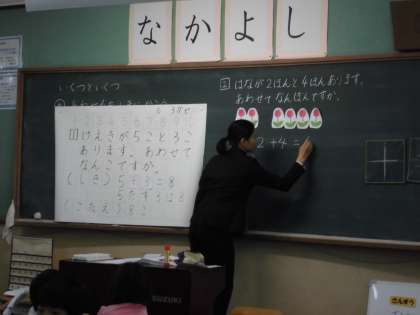 なかよし
いくつといくつ
2 はなが2ほんと4ほんあります。
あわせてなんぼんですか。
2+4=
1 けえきが5こと3こ
あります。あわせて
なんこですか。
(しき) 5+3=8
(こたえ) 8こ
SUZUKI
さんすう